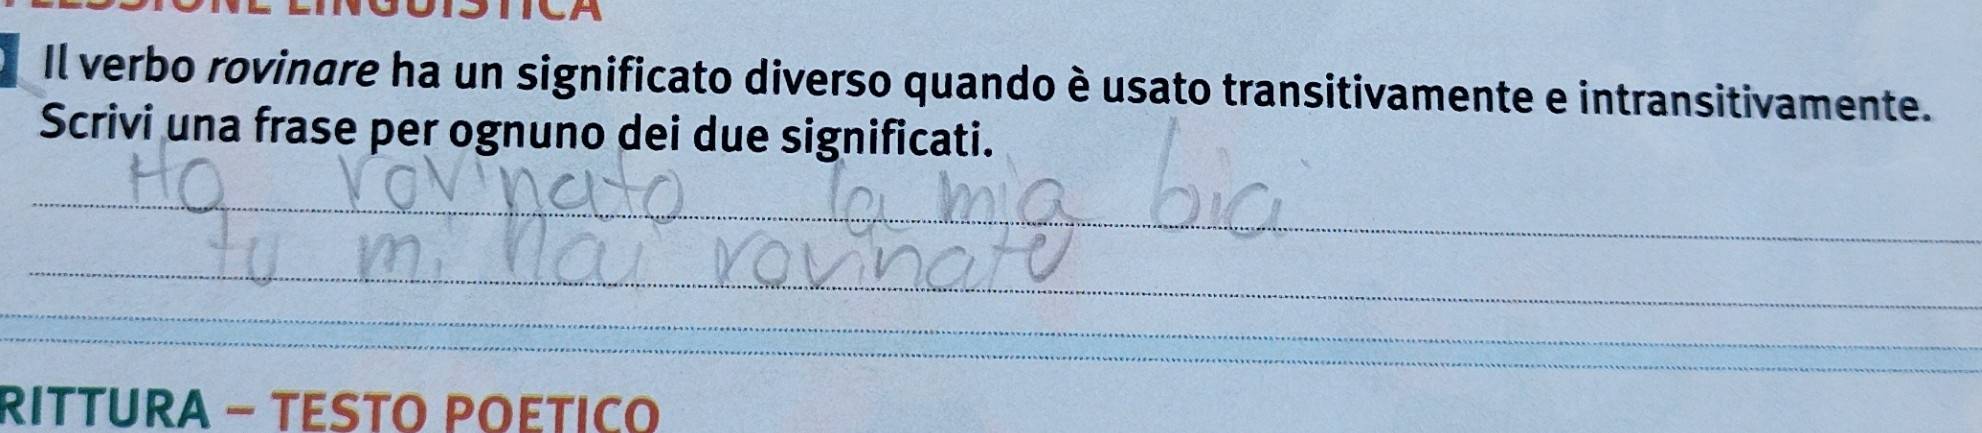 LINGUISTICA
Il verbo rovinare ha un significato diverso quando è usato transitivamente e intransitivamente.
Scrivi una frase per ognuno dei due significati.
Ho rovinato la mia bici
tu mi hai rovinato
RITTURA – TESTO POETICO